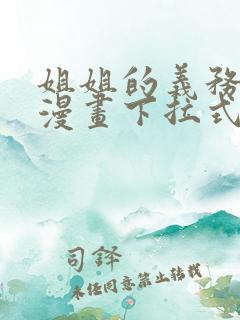 姐姐的義務
漫畫下拉式
司鐸
未经同意禁止转载